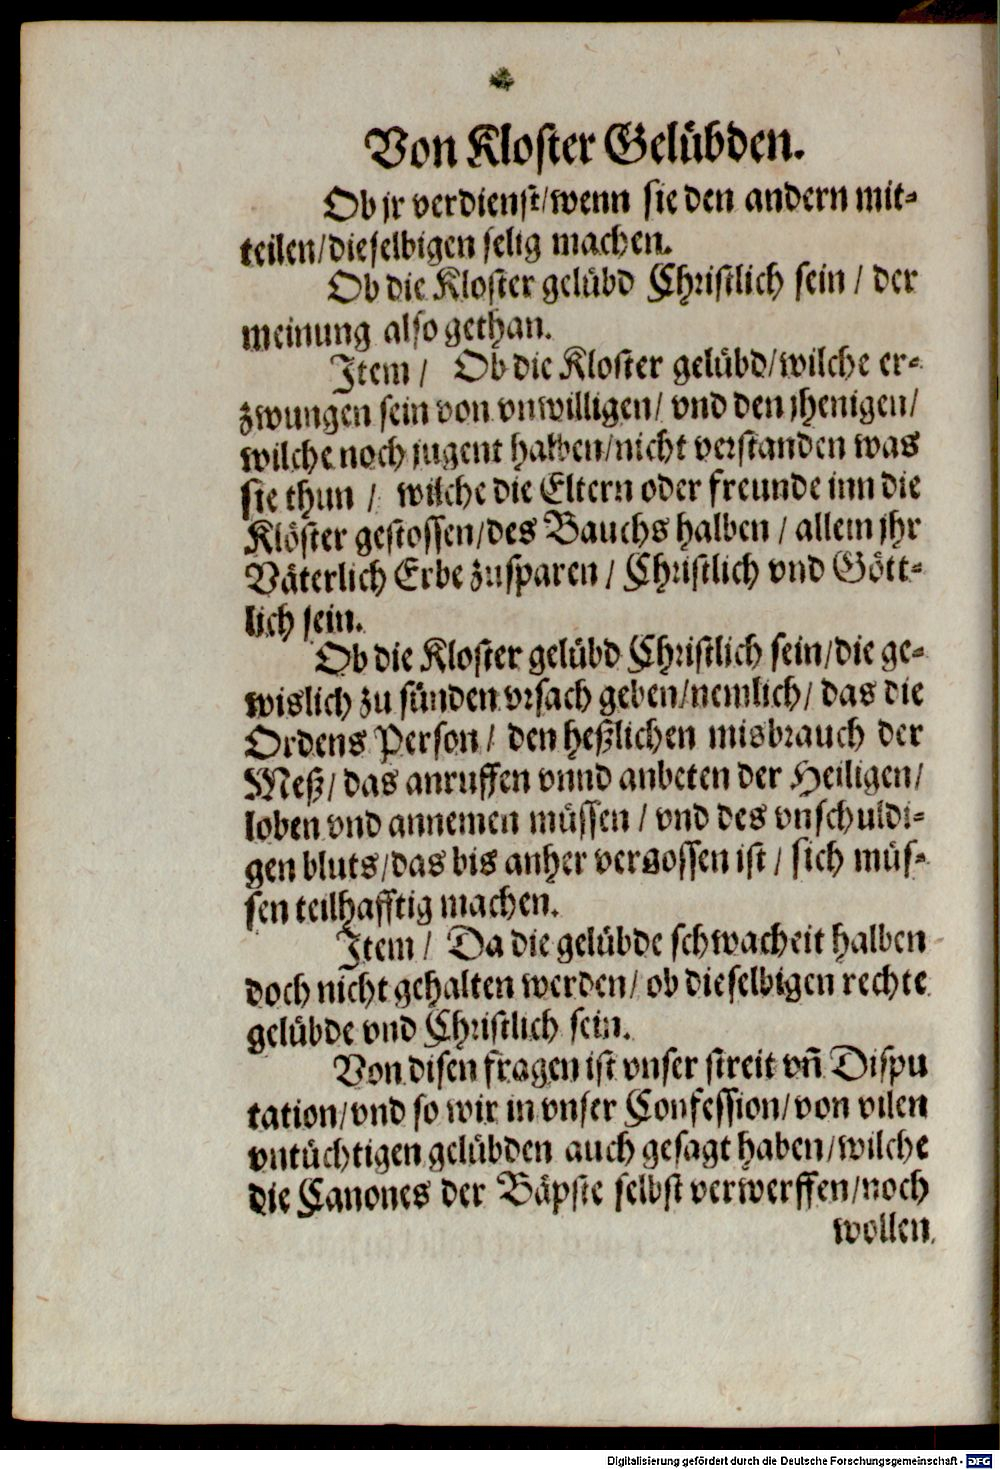 Von Kloster Gelübden.
Ob jr verdienst/wenn sie den andern mit-
teilen/dieselbigen selig machen.
Ob die Kloster gelübd Christlich sein / der
meinung also gethan.
Item / Ob die Kloster gelübd/wilche er-
zwungen sein von vnwilligen/ vnd den jhenigen/
wilche noch jugent halben/nicht verstanden was
sie thun / wilche die Eltern oder freunde inn die
Klöster gestossen/des Bauchs halben / allein jhr
Väterlich Erbe zusparen / Christlich vnd Gött-
lich sein.
Ob die Kloster gelübd Christlich sein/die ge-
wislich zu sünden vrsach geben/nemlich/ das die
Ordens Person/ den heßlichen misbrauch der
Meß/ das anruffen vnnd anbeten der Heiligen/
loben vnd annemen müssen / vnd des vnschuldi-
gen bluts/das bis anher vergossen ist / sich müs-
sen teilhafftig machen.
Item / Da die gelübde schwacheit halben
doch nicht gehalten werden/ ob dieselbigen rechte
gelübde vnd Christlich sein.
Von disen fragen ist vnser streit vñ Dispu
tation/vnd so wir in vnser Confession/von vilen
vntüchtigen gelübden auch gesagt haben/wilche
die Canones der Bäpste selbst verwerffen/noch
wollen
Digitalisierung gefördert durch die Deutsche Forschungsgemeinschaft - DFG